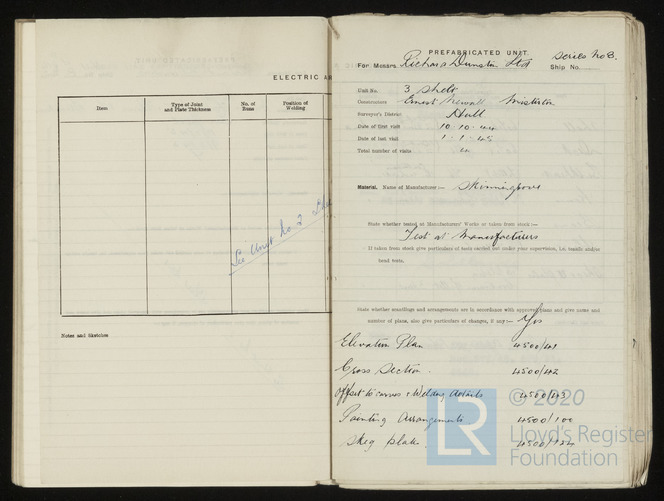 ELECTRIC AR
Item
Type of Joint and Plate Thickness
No. of Runs
Position of Welding
See Unit No 2
Notes and Sketches
PREFABRICATED UNIT.
For Messrs. Richard Dunston Ltd
Series No 8.
Ship No.
Unit No. 3 Skeg
Constructors Ernest Newall Misterton
Surveyor's District Hull
Date of first visit 10 : 10 : 44
Date of last visit 1 : 1 : 45
Total number of visits
Material. Name of Manufacturer:— Skinningrove
State whether tested at Manufacturers' Works or taken from stock:—
Test at Manufacturers
If taken from stock give particulars of tests carried out under your supervision, i.e. tensile and/or
bend tests.
State whether scantlings and arrangements are in accordance with approved plans and give name and
number of plans, also give particulars of changes, if any:— Yes
Elevation Plan 4500/41
Cross Section. 4500/42
Offset to curves & Welding details 4500/43
Painting Arrangements 4500/100
Skeg plate. 4500/124
© 2020
LR
Lloyd's Register
Foundation